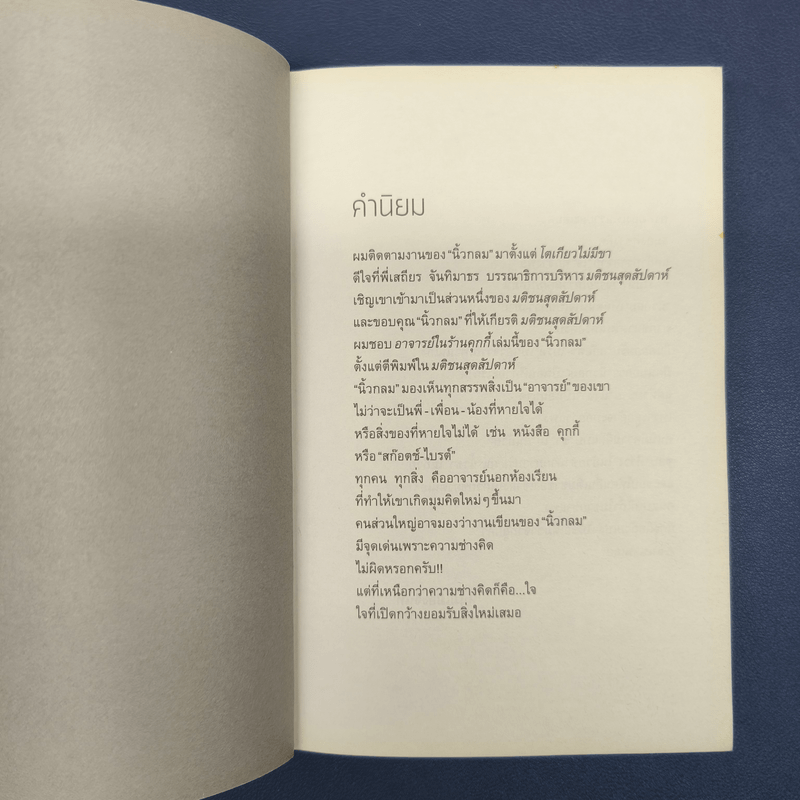 คำนิยม
ผมติดตามงานของ “นิ้วกลม” มาตั้งแต่ โตเกียวไม่มีขา
ดีใจที่พี่เสถียร จันทิมาธร บรรณาธิการบริหาร มติชนสุดสัปดาห์
เชิญเขาเข้ามาเป็นส่วนหนึ่งของ มติชนสุดสัปดาห์
และขอบคุณ “นิ้วกลม” ที่ให้เกียรติ มติชนสุดสัปดาห์
ผมชอบ อาจารย์ในร้านคุกกี้ เล่มนี้ของ “นิ้วกลม”
ตั้งแต่ตีพิมพ์ใน มติชนสุดสัปดาห์
“นิ้วกลม” มองเห็นทุกสรรพสิ่งเป็น “อาจารย์” ของเขา
ไม่ว่าจะเป็นพี่ - เพื่อน - น้องที่หายใจได้
หรือสิ่งของที่หายใจไม่ได้ เช่น หนังสือ คุกกี้
หรือ “สก๊อตช์-ไบรต์”
ทุกคน ทุกสิ่ง คืออาจารย์นอกห้องเรียน
ที่ทำให้เขาเกิดมุมคิดใหม่ ๆ ขึ้นมา
คนส่วนใหญ่อาจมองว่างานเขียนของ “นิ้วกลม”
มีจุดเด่นเพราะความช่างคิด
ไม่ผิดหรอกครับ!!
แต่ที่เหนือกว่าความช่างคิดก็คือ...ใจ
ใจที่เปิดกว้างยอมรับสิ่งใหม่เสมอ